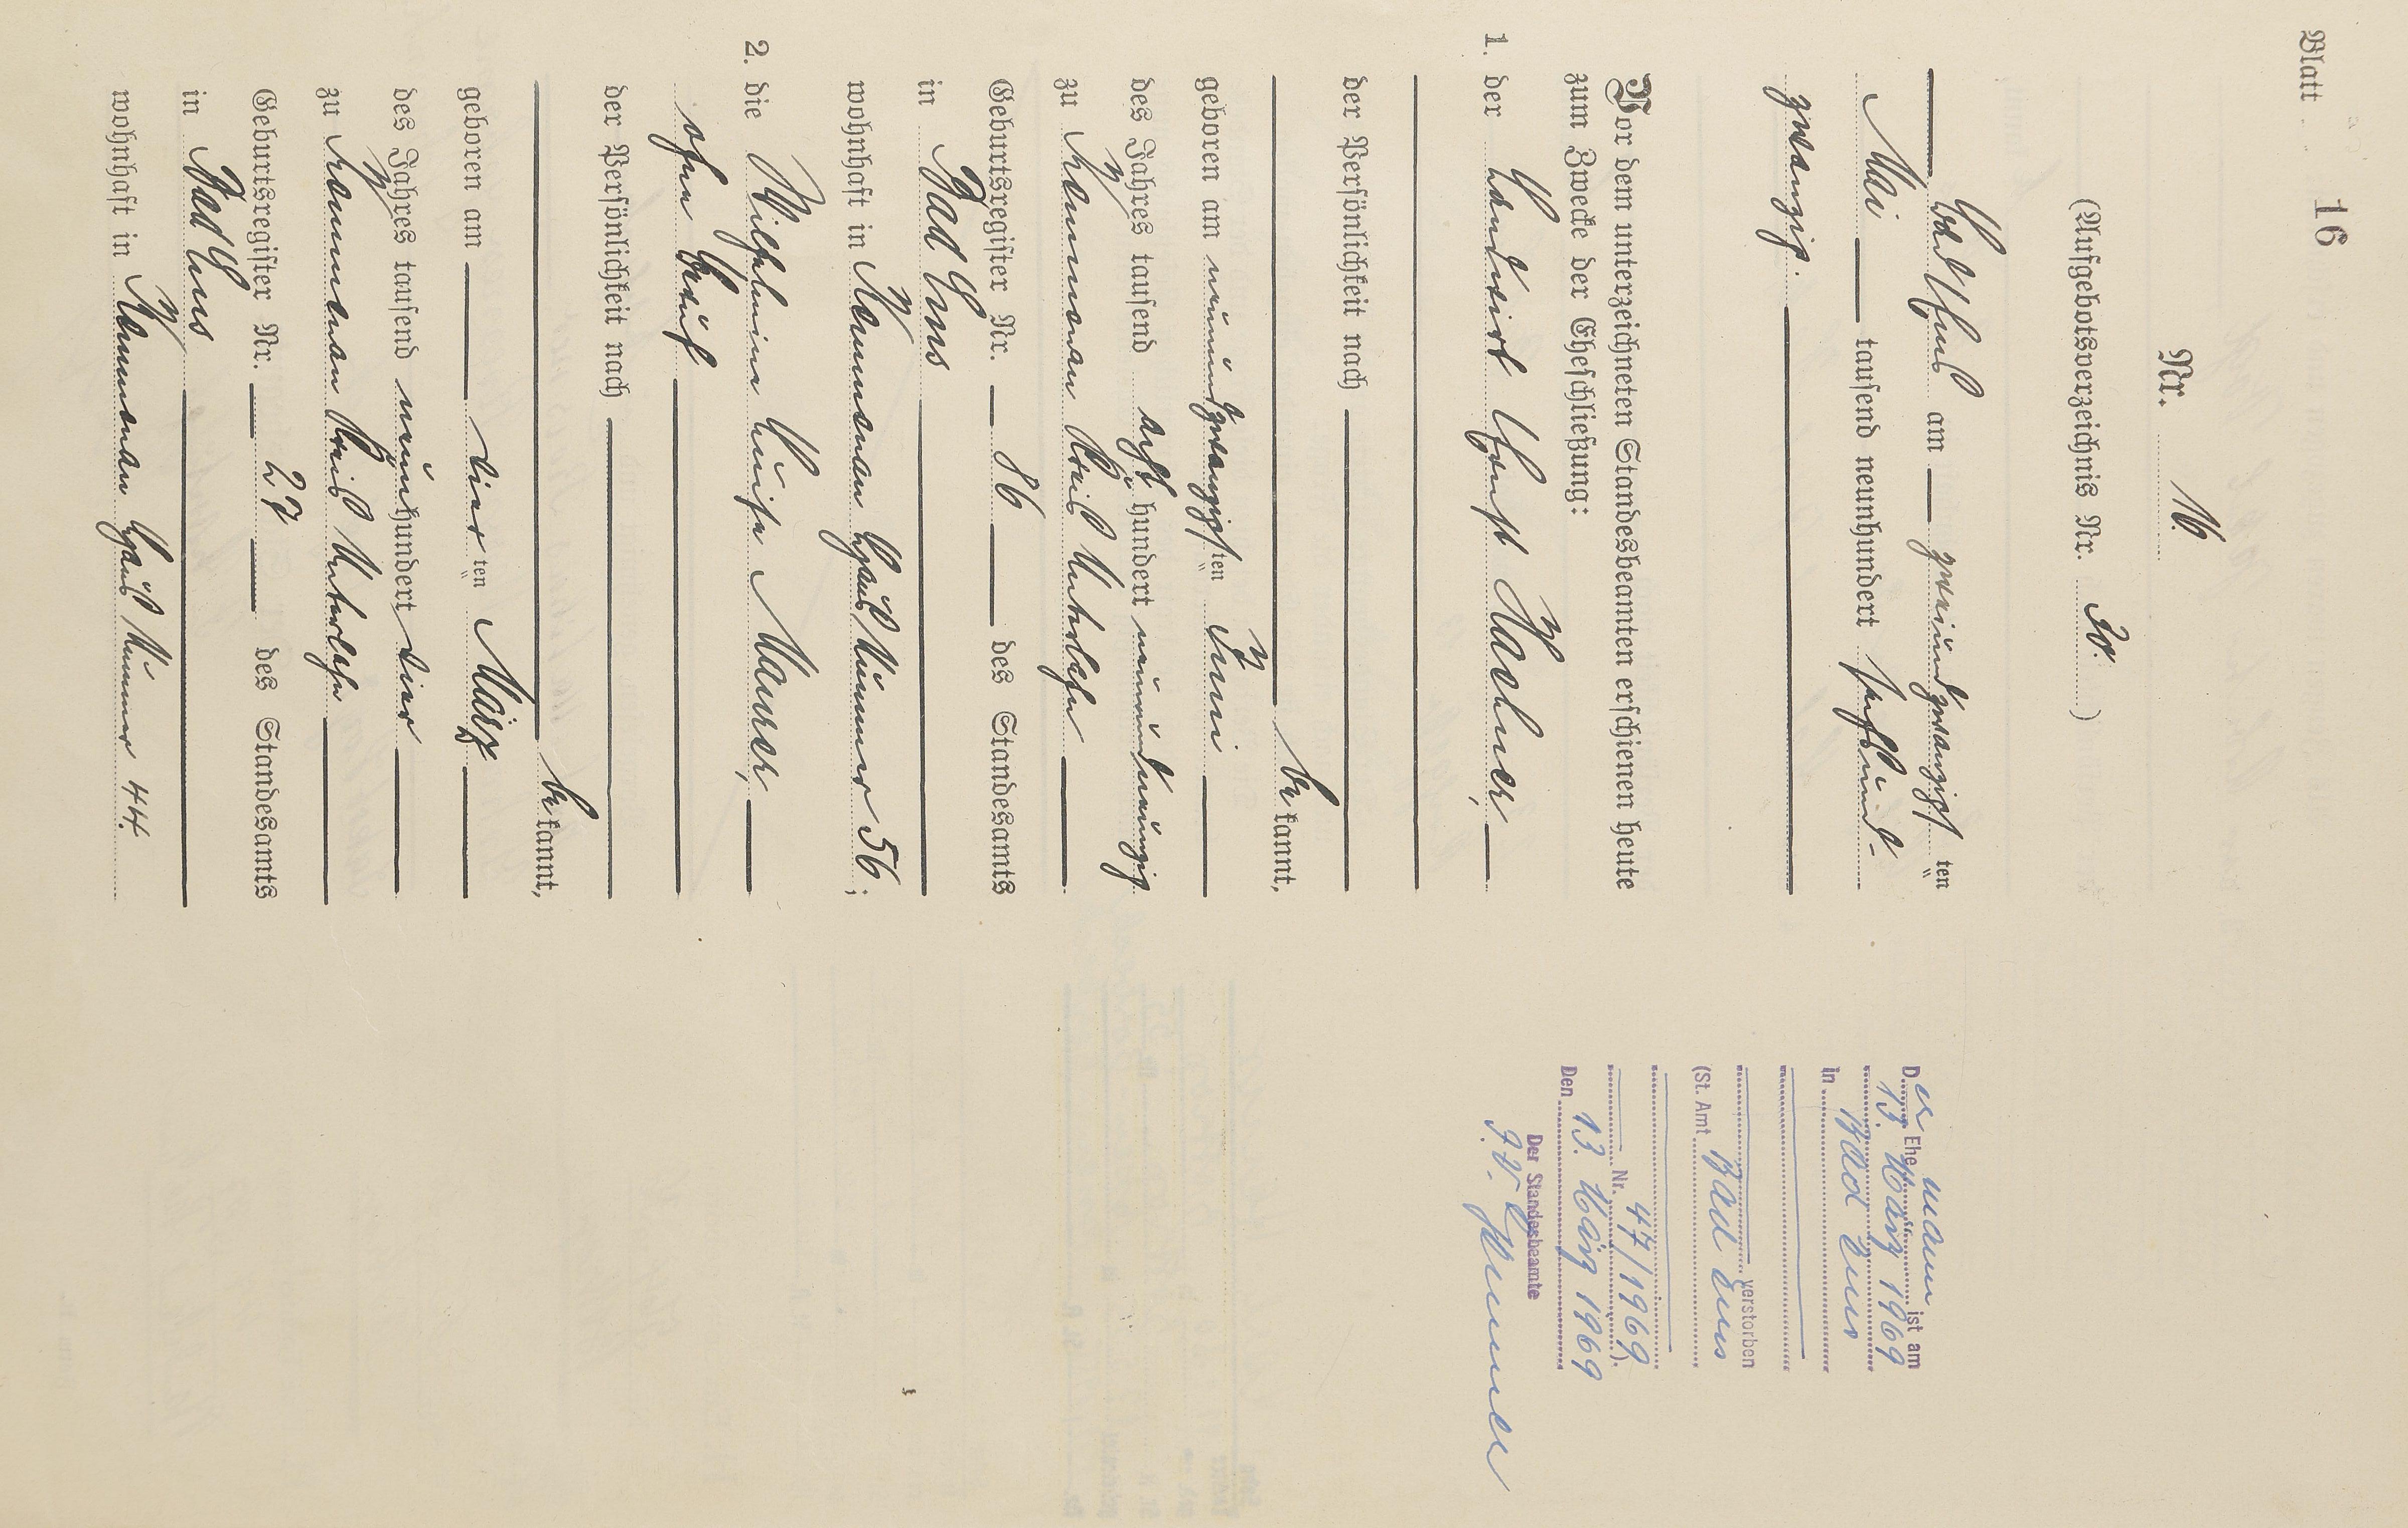 Blatt 16
Nr. 16.
(Aufgebotsverzeichnis Nr. 30.)
Bad Ems am zweiundzwanzigsten
Mai tausend neunhundert sechsund-
zwanzig.
Vor dem unterzeichneten Standesbeamten erschienen heute
zum Zwecke der Eheschließung:
1. der Landwirt Ernst
der Persönlichkeit nach
bekannt,
geboren am neunundzwanzigsten Juni
des Jahres tausend achthundert neunundneunzig
zu Kemmenau Kreis Unterlahn
Geburtsregister Nr. 86 des Standesamts
in Bad Ems
wohnhaft in Kemmenau Haus Nummer 56;
2. die Wilhelmine Luise Maurer,
ohne Beruf
der Persönlichkeit nach
bekannt,
geboren am vierten März
des Jahres tausend neunhundert vier
zu Kemmenau Kreis Unterlahn
Geburtsregister Nr. 27 des Standesamts
in Bad Ems
wohnhaft in Kemmenau Haus Nummer 44.
Der Ehemann ist am
13. März 1969
in Bad Ems
verstorben
(St. Amt Bad Ems
Nr. 47/1969).
Den 13. März 1969
Der Standesbeamte
I.V.